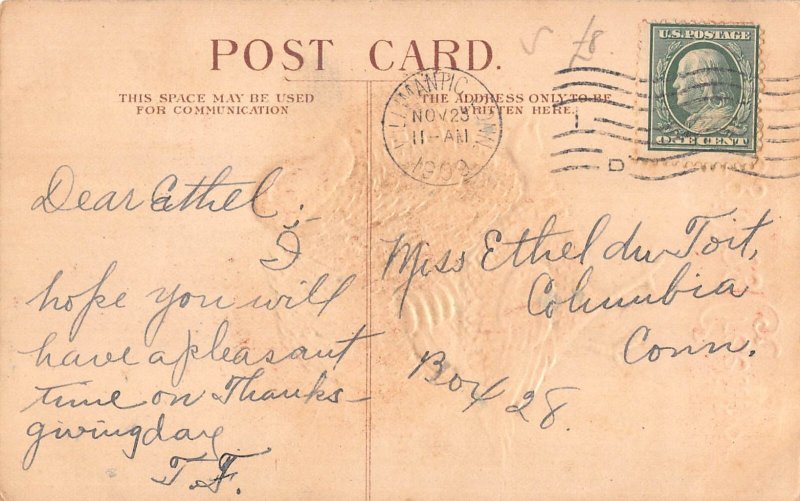 POST CARD.
THIS SPACE MAY BE USED
FOR COMMUNICATION
THE ADDRESS ONLY TO BE
WRITTEN HERE.
WILLIMANTIC, CONN.
NOV 23
11-AM
1909
D
U.S. POSTAGE
ONE CENT
Dear Ethel;-
I
hope you will
have a pleasant
time on Thanks-
giving day
T.F.
Miss Ethel du Toit,
Columbia
Conn.
Box 28.